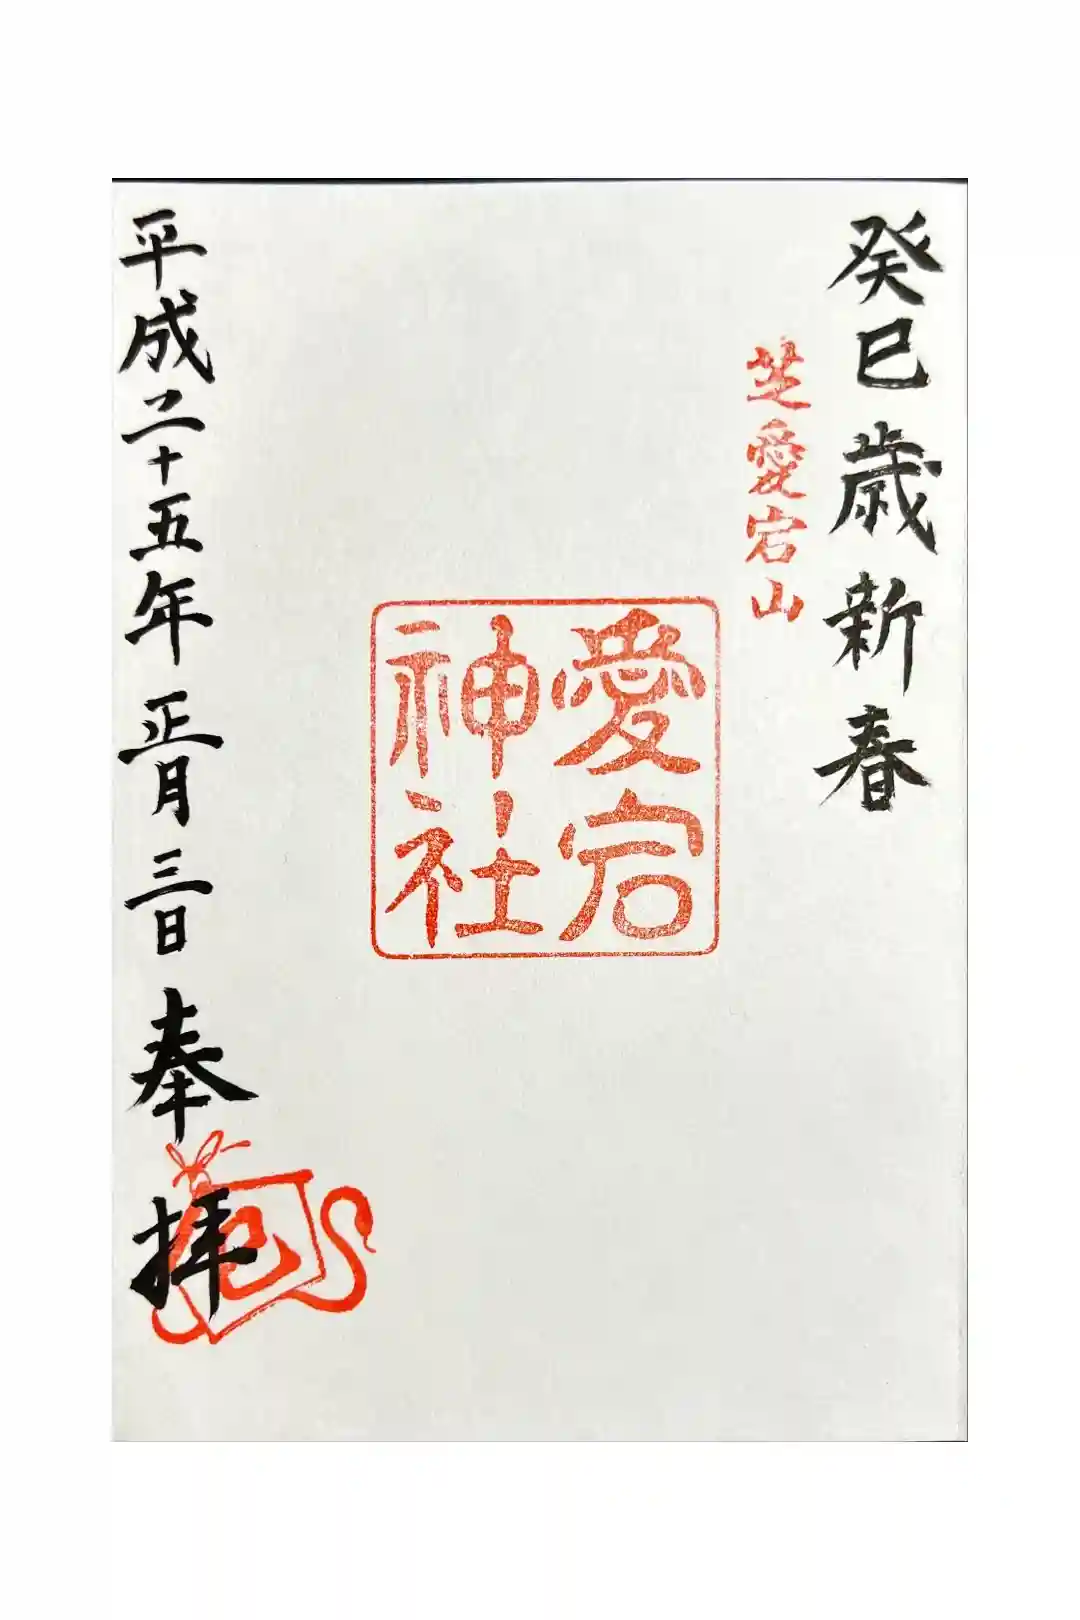 癸巳歳新春
芝愛宕山
愛宕
神社
平成二十五年正月三日奉拝
巳